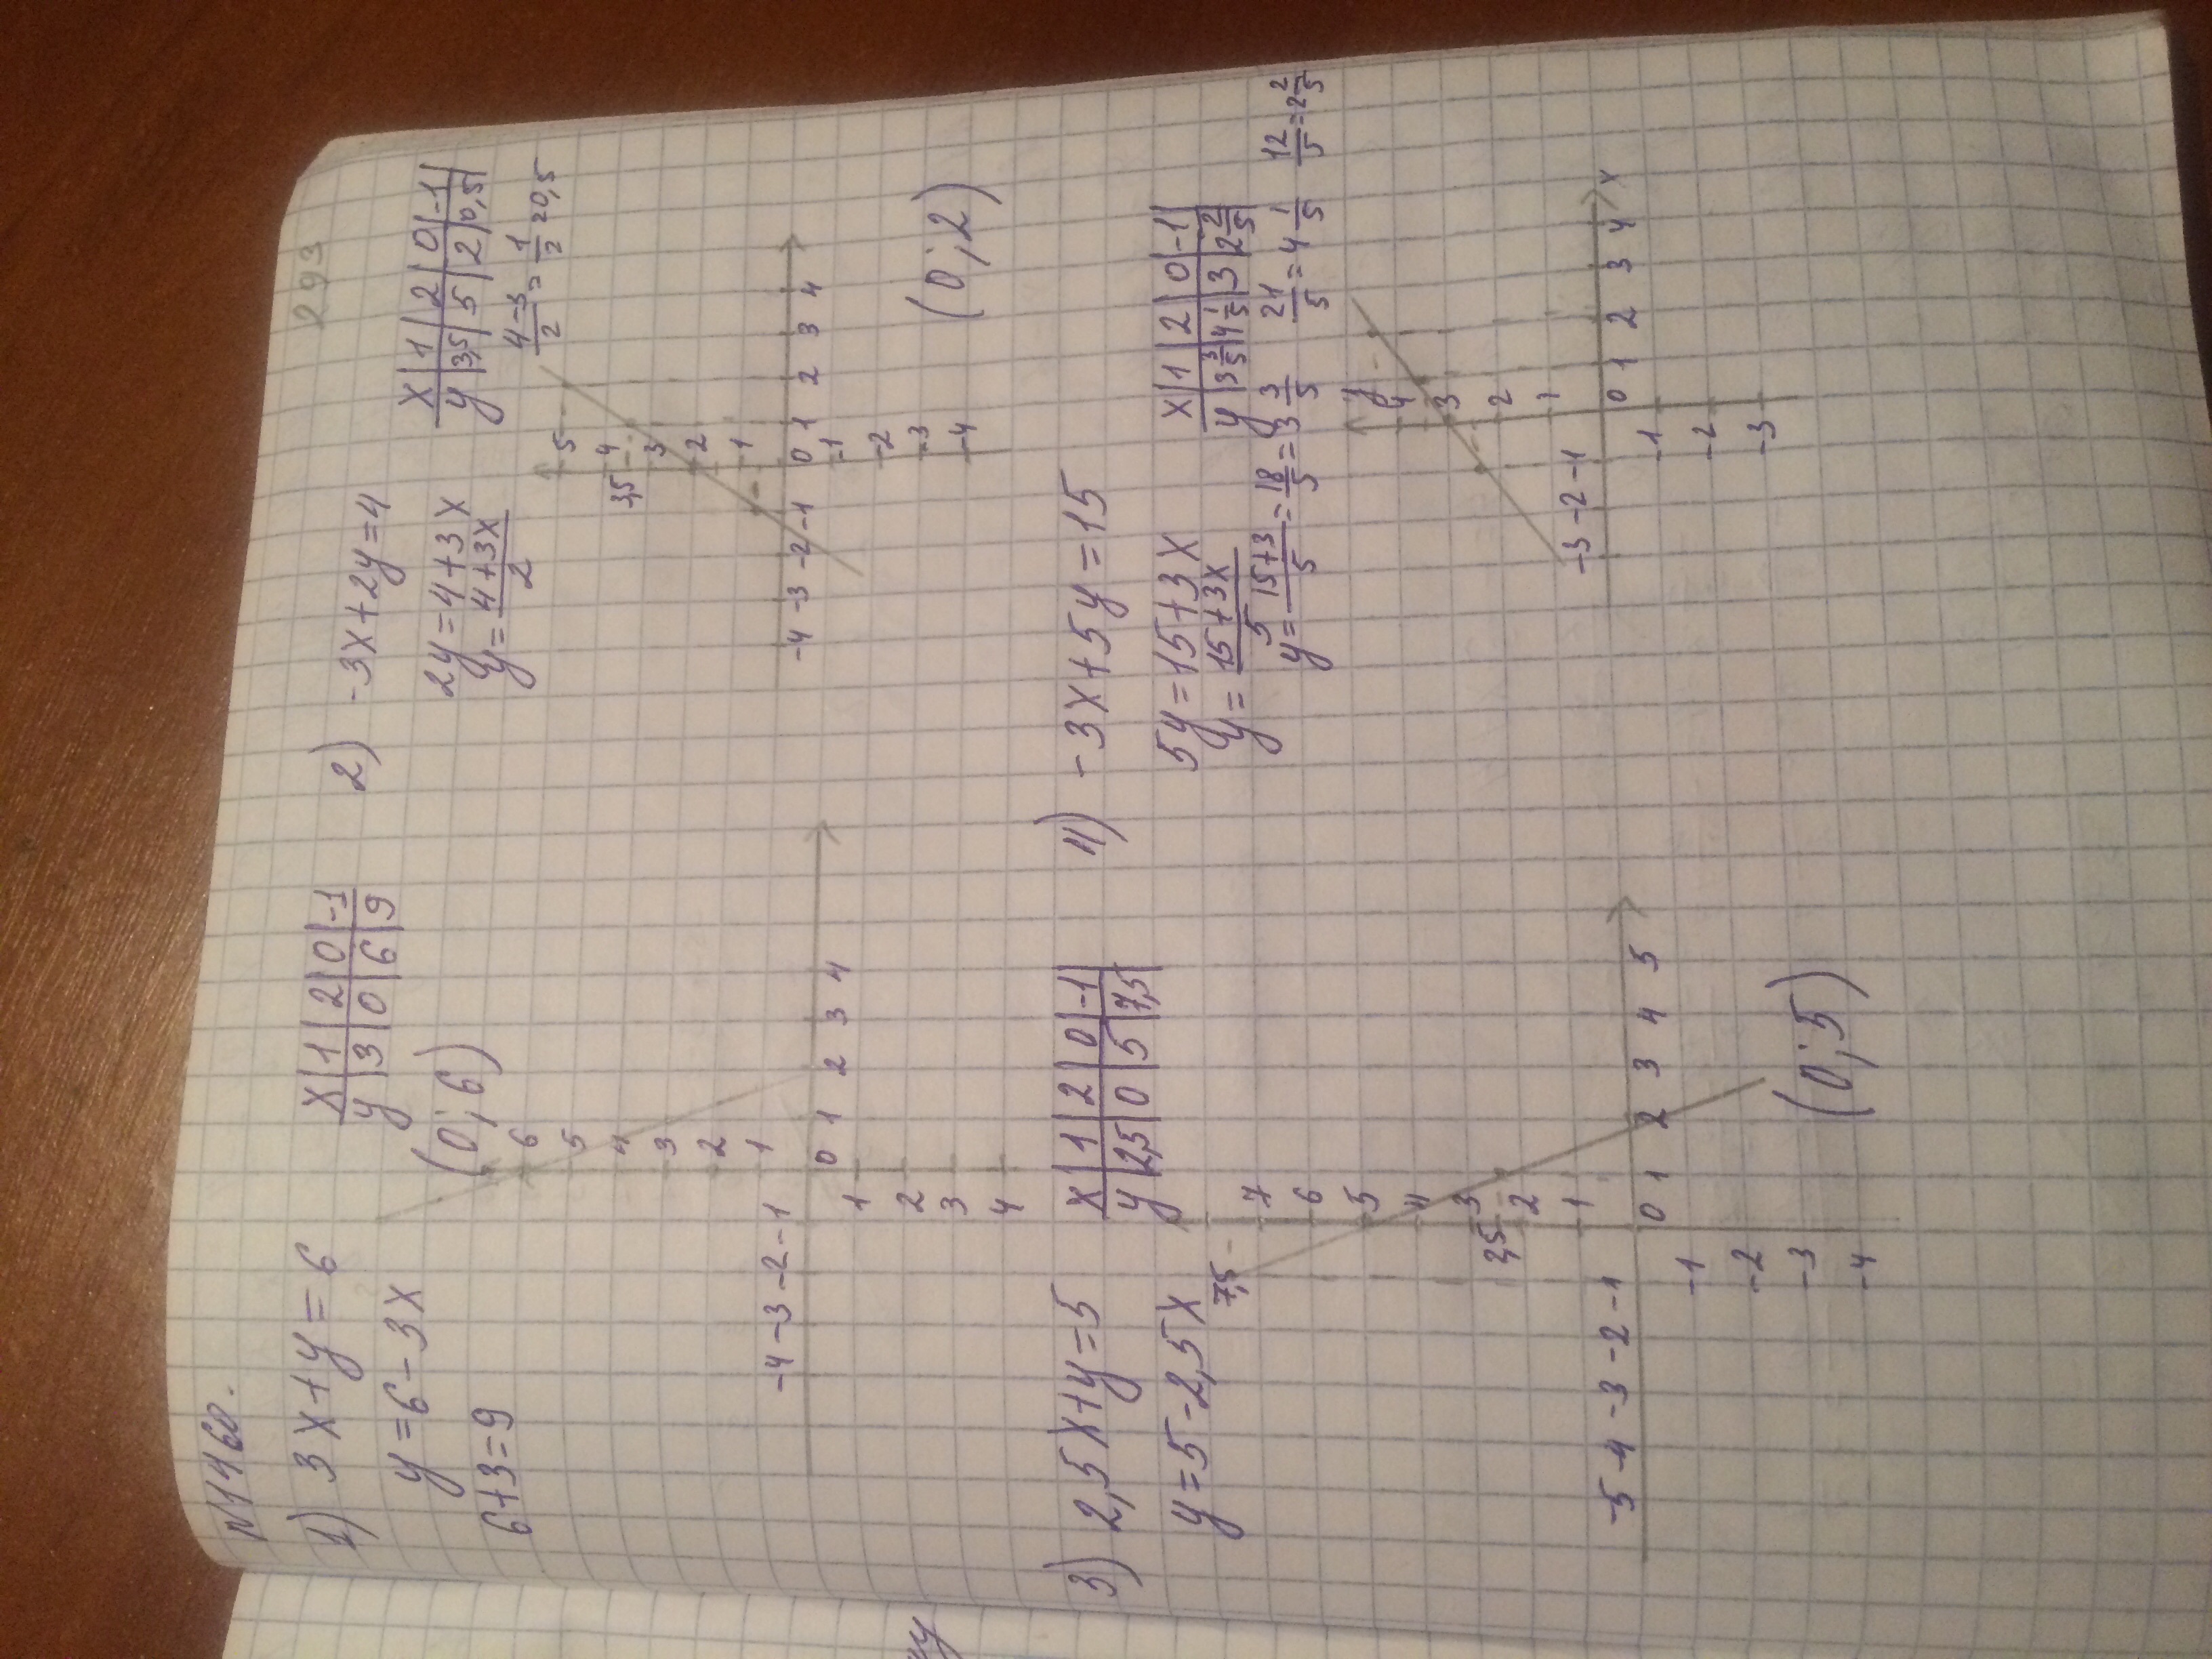 293
N1160.
1) 3x+y=6
y=6-3x
6+3=9
x | 1 | 2 | 0 | -1
y | 3 | 0 | 6 | 9
(0;6)
6
5
4
3
2
1
-4 -3 -2 -1 0 1 2 3 4
1
2
3
4
2) -3x+2y=4
2y=4+3x
y=(4+3x)/2
x | 1 | 2 | 0 | -1
y | 3,5 | 5 | 2 | 0,5
(4-3)/2 = 1/2 = 0,5
5
4
3,5
3
2
1
-4 -3 -2 -1 0 1 2 3 4
-1
-2
-3
-4
(0;2)
3) 2,5x+y=5
y=5-2,5x
x | 1 | 2 | 0 | -1
y | 2,5 | 0 | 5 | 7,5
7,5
7
6
5
4
3
2,5
2
1
-5 -4 -3 -2 -1 0 1 2 3 4 5
-1
-2
-3
-4
(0;5)
4) -3x+5y=15
5y=15+3x
y=(15+3x)/5
y=(15+3)/5=18/5=3 3/5
x | 1 | 2 | 0 | -1
y | 3 3/5 | 4 1/5 | 3 | 2 2/5
21/5=4 1/5 12/5=2 2/5
y
4
3
2
1
-3 -2 -1 0 1 2 3 4 x
-1
-2
-3